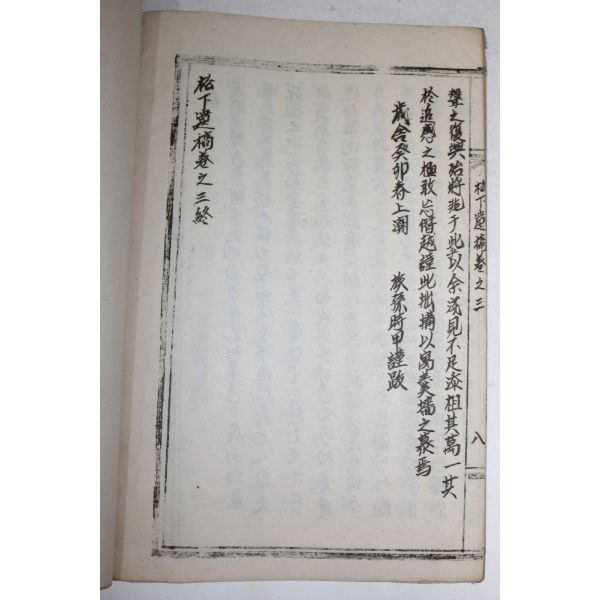 松下遺稿卷之三
八
聲之復興殆將兆于此以余淺見不足添祖其萬一其
於追感之極敢忘僭越謹此搆以寓羹墻之慕焉
歲舍癸卯春上澣 族孫時甲謹跋
松下遺稿卷之三終